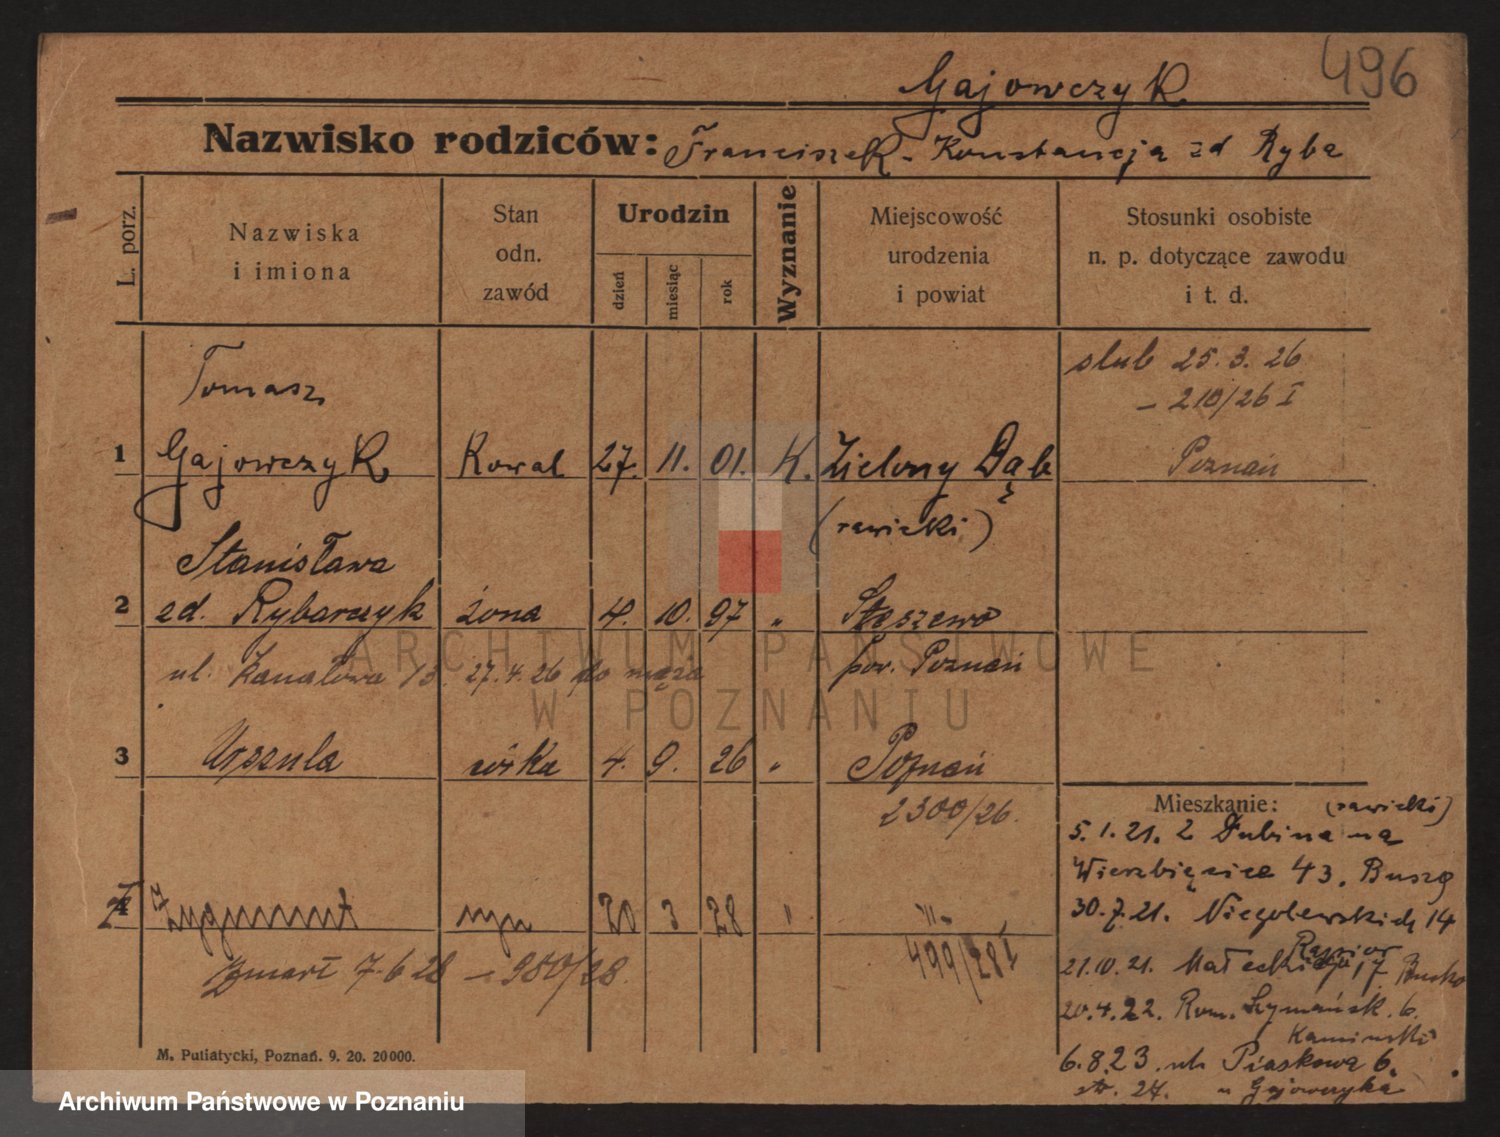 496
Gajowczyk
Nazwisko rodziców: Franciszek - Konstancja zd Ryba
L. porz.
Nazwiska
i imiona
Stan
odn.
zawód
Urodzin
dzień
miesiąc
rok
Wyznanie
Miejscowość
urodzenia
i powiat
Stosunki osobiste
n. p. dotyczące zawodu
i t. d.
ślub 25.3.26
- 210/26 I
Poznań
Tomasz
1 Gajowczyk Kowal 27. 11. 01. K. Zielony Dąb
(rawicki)
Stanisława
2 zd. Rybarczyk żona 4. 10. 97 „ Staszewo
pow. Poznań
ul. Kanałowa 13. 27.4.26 do męża
3 Urszula córka 4. 9. 26 „ Poznań
2300/26.
4 Zygmunt syn 20 3 28 " "
499/28 I
Zmarł 7.6 28 - 980/28.
Mieszkanie: (rawicki)
5.1.21. z Dubina na
Wierzbięcice 43.
30.7.21. Niegolewskich 14
21.10.21. Małeckiego 17
20.4.22. Rom. Szymańsk. 6.
Kamiński
6.8.23. ul. Piaskowa 6.
str. 24. u Gajowczyka
M. Putiatycki, Poznań. 9. 20. 20000.
ARCHIWUM PAŃSTWOWE
W POZNANIU
Archiwum Państwowe w Poznaniu